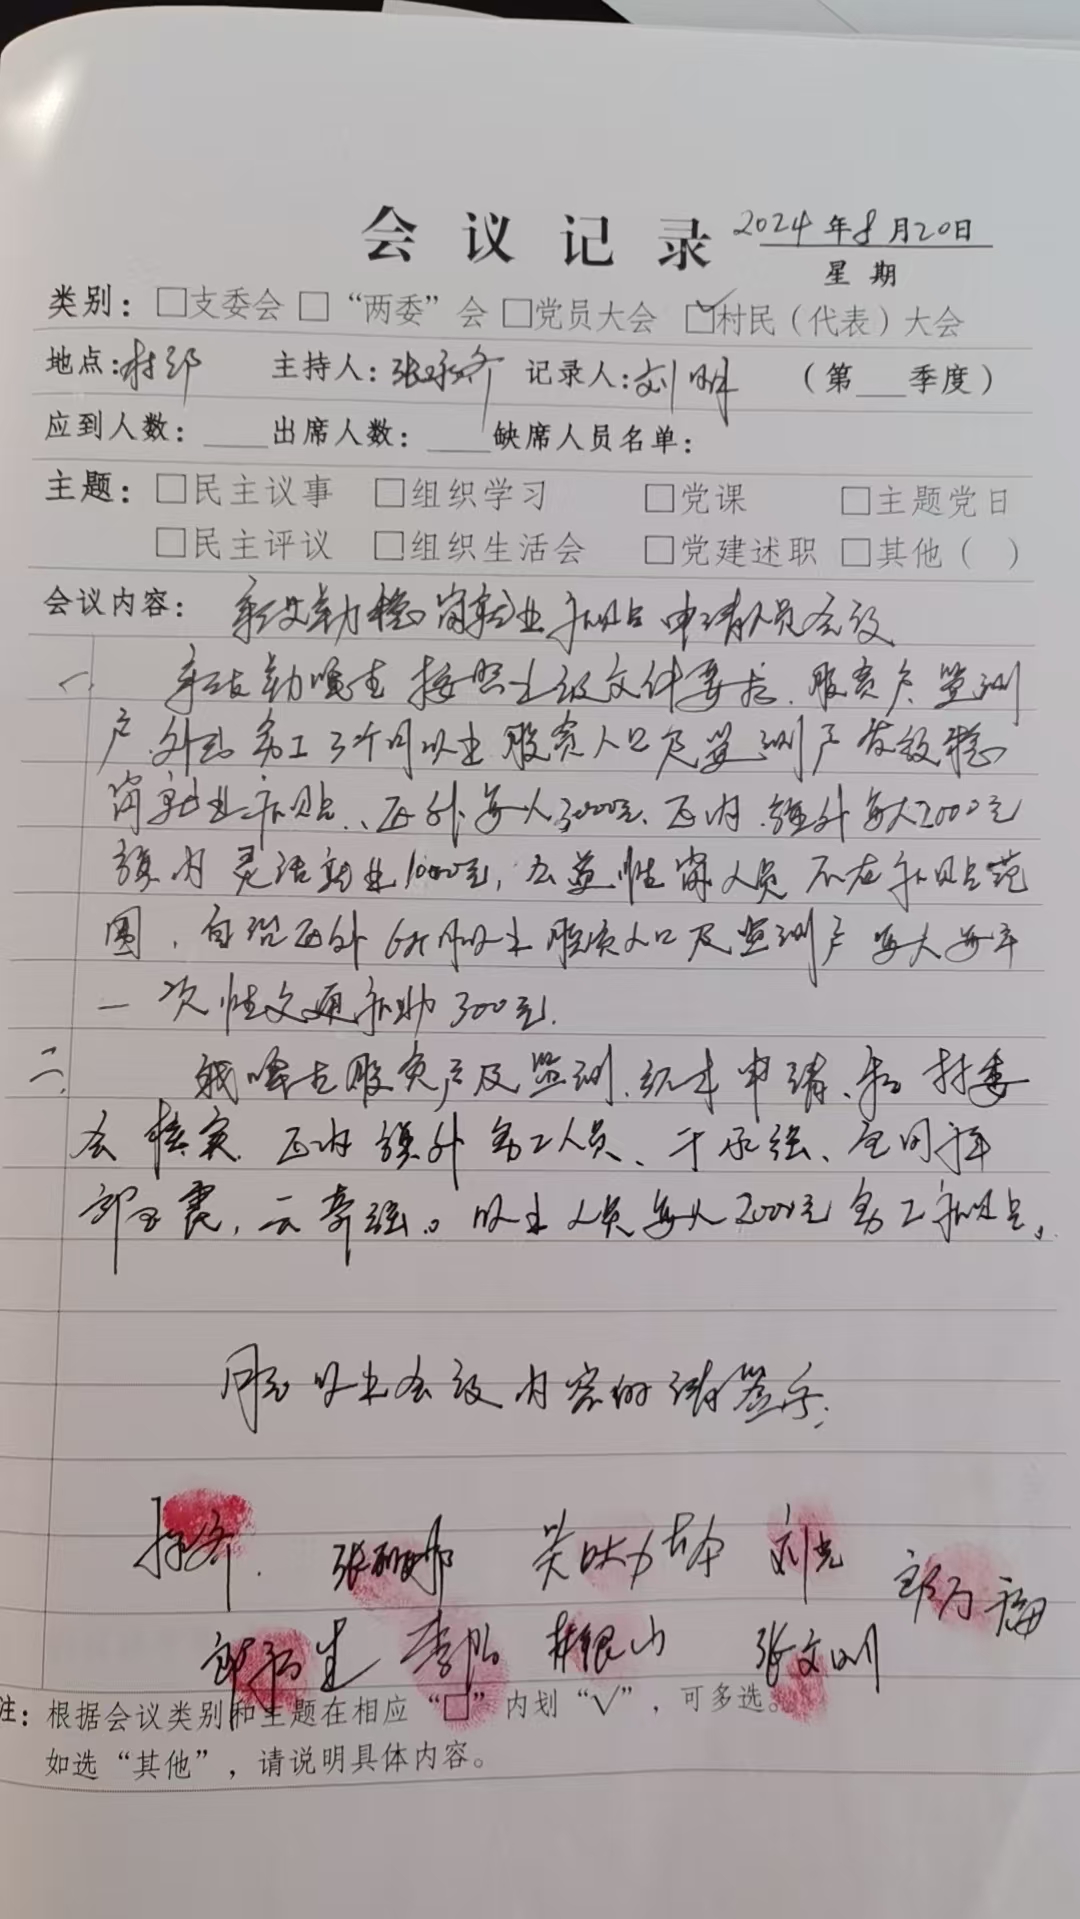 会议记录 2024年8月20日
星期
类别：□支委会 □“两委”会 □党员大会 ☑村民（代表）大会
地点：村部 主持人：张永齐 记录人：刘明 （第___季度）
应到人数：____出席人数：____缺席人员名单：
主题：□民主议事 □组织学习 □党课 □主题党日
□民主评议 □组织生活会 □党建述职 □其他（ ）
会议内容： 稳岗就业补贴申请人员会议
一、 按照上级文件要求、脱贫户、监测
户、外出务工3个月以上脱贫人口及监测户发放稳
岗就业补贴、区外每人3000元、区内、旗外每人2000元
旗内灵活就业1000元，公益性岗人员不在补贴范
围，自治区外6个月以上脱贫人口及监测户每人每年
一次性交通补助300元.
二、 脱贫户及监测、 申请、 村委
会核实 区内旗外务工人员、于永强、
郎玉霞，云奇强。以上人员每人2000元务工补贴。
同意以上会议内容的请签字：
张 吴 刘
郎万福
李 林银山 张文明
注：根据会议类别和主题在相应“□”内划“√”，可多选。
如选“其他”，请说明具体内容。